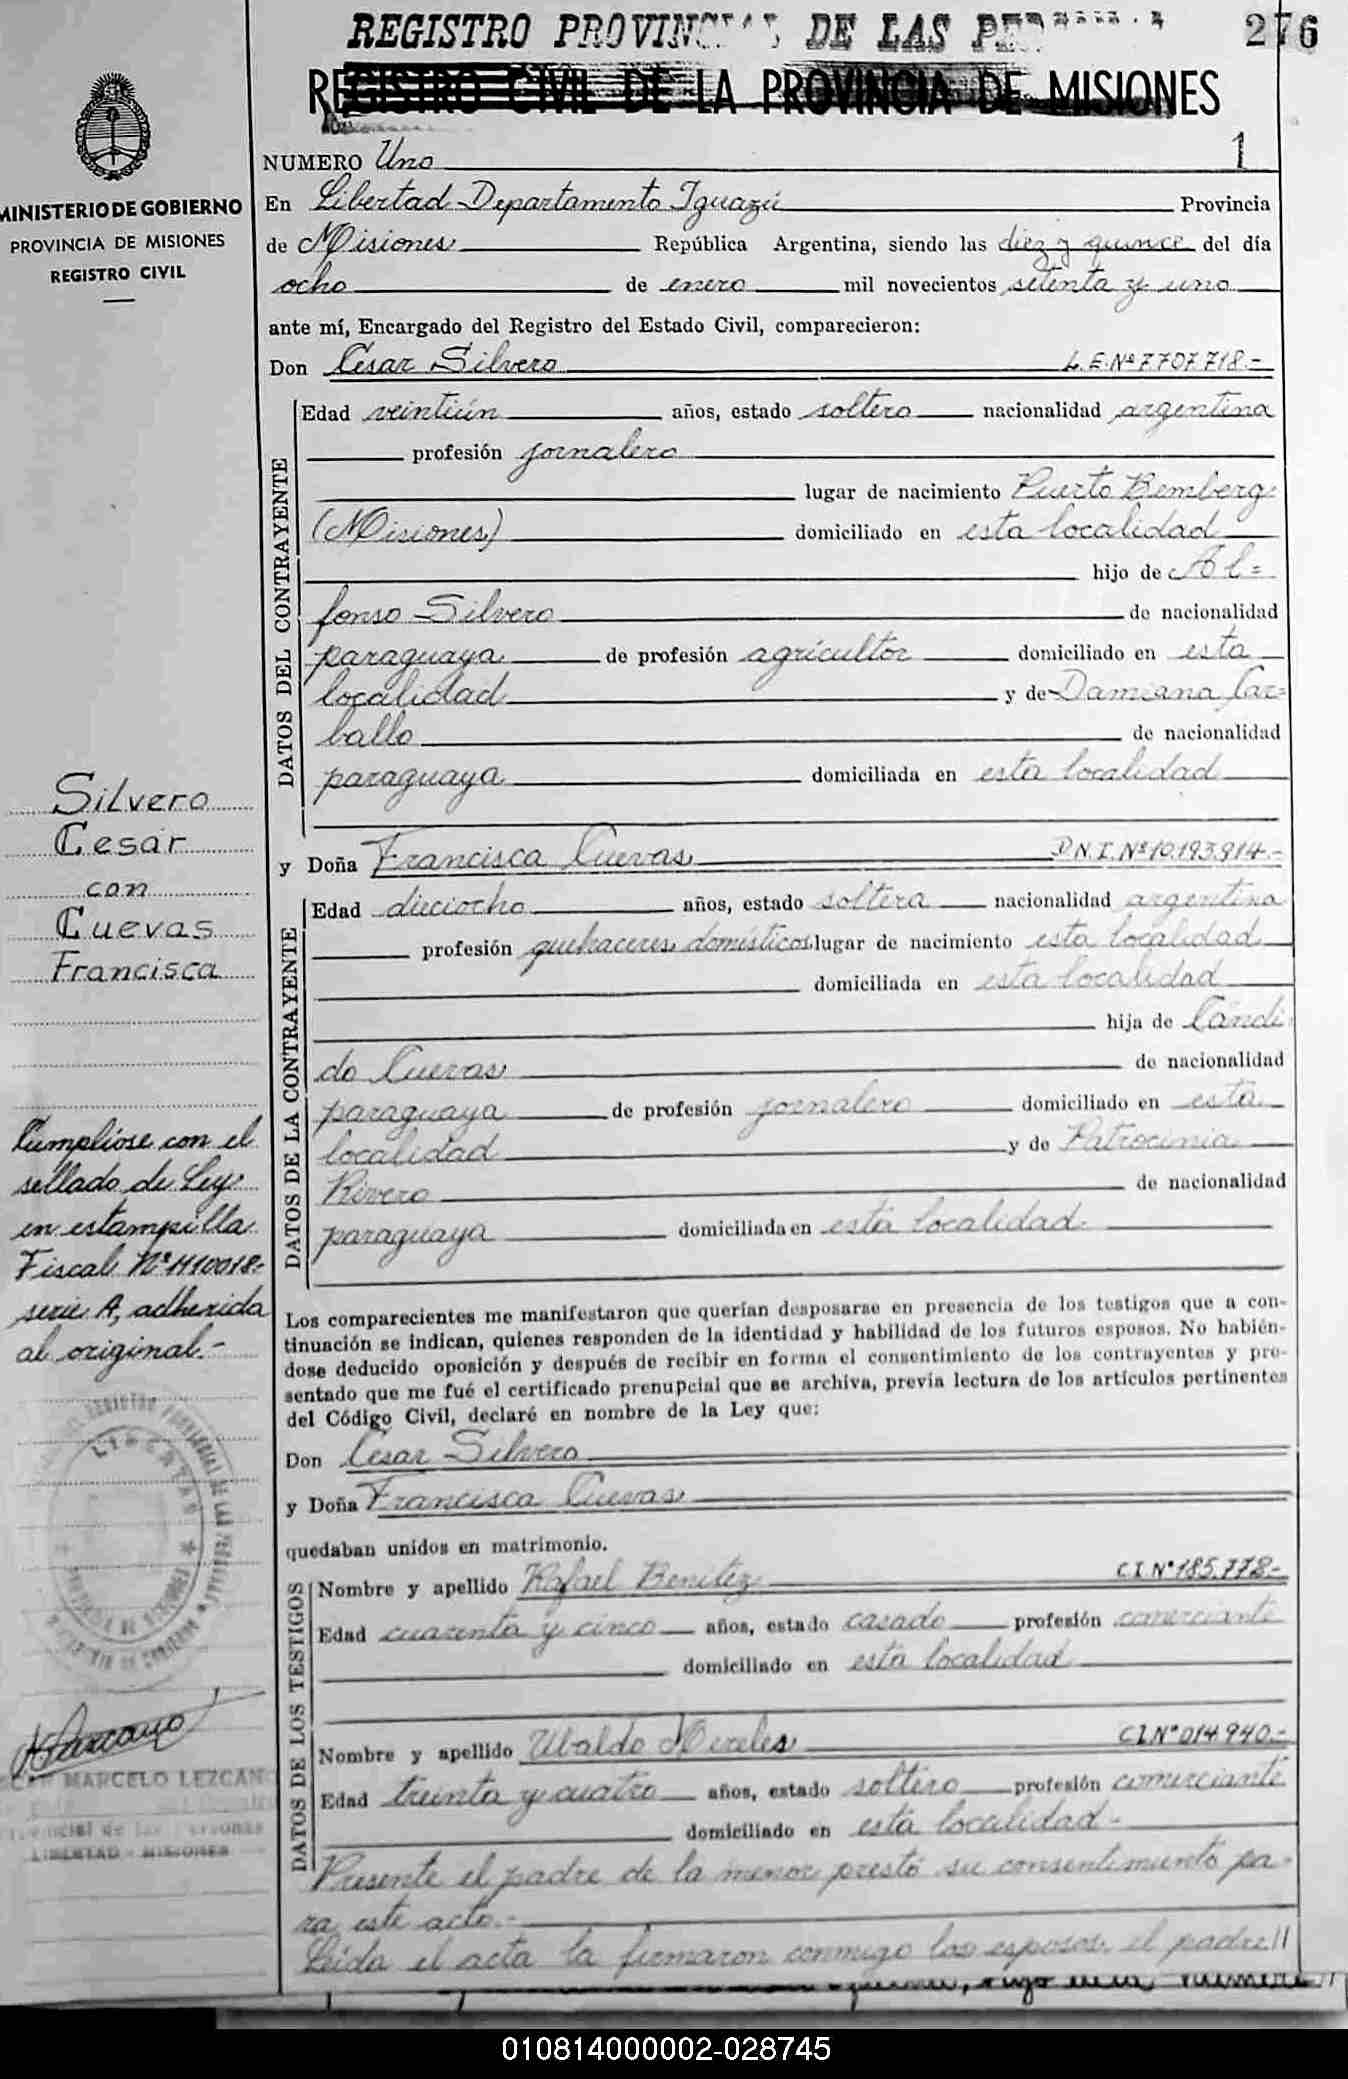 REGISTRO PROVINCIAL DE LAS PERSONAS
276
REGISTRO CIVIL DE LA PROVINCIA DE MISIONES
MINISTERIO DE GOBIERNO
PROVINCIA DE MISIONES
REGISTRO CIVIL
NUMERO Uno 1
En Libertad Departamento Iguazú Provincia
de Misiones República Argentina, siendo las diez y quince del día
ocho de enero mil novecientos setenta y uno
ante mí, Encargado del Registro del Estado Civil, comparecieron:
Don César Silvero L.E.Nº7.707.718.-
DATOS DEL CONTRAYENTE
Edad veintiún años, estado soltero nacionalidad argentina
profesión jornalero
lugar de nacimiento Puerto Bemberg
(Misiones) domiciliado en esta localidad
hijo de Al=
fonso Silvero de nacionalidad
paraguaya de profesión agricultor domiciliado en esta
localidad y de Damiana Car=
ballo de nacionalidad
paraguaya domiciliada en esta localidad
y Doña Francisca Cuevas D.N.I.Nº10.193.914.-
DATOS DE LA CONTRAYENTE
Edad dieciocho años, estado soltera nacionalidad argentina
profesión quehaceres domésticos lugar de nacimiento esta localidad
domiciliada en esta localidad
hija de Cándi
do Cuevas de nacionalidad
paraguaya de profesión jornalero domiciliado en esta
localidad y de Patrocinia
Rivero de nacionalidad
paraguaya domiciliada en esta localidad
Los comparecientes me manifestaron que querían desposarse en presencia de los testigos que a con-
tinuación se indican, quienes responden de la identidad y habilidad de los futuros esposos. No habién-
dose deducido oposición y después de recibir en forma el consentimiento de los contrayentes y pre-
sentado que me fué el certificado prenupcial que se archiva, previa lectura de los artículos pertinentes
del Código Civil, declaré en nombre de la Ley que:
Don César Silvero
y Doña Francisca Cuevas
quedaban unidos en matrimonio.
DATOS DE LOS TESTIGOS
Nombre y apellido Rafael Benitez C.I.Nº185.778-
Edad cuarenta y cinco años, estado casado profesión comerciante
domiciliado en esta localidad
Nombre y apellido Ubaldo Mereles C.I.Nº014.940.-
Edad treinta y cuatro años, estado soltero profesión comerciante
domiciliado en esta localidad-
Presente el padre de la menor prestó su consentimiento pa-
ra este acto.-
Leída el acta la firmaron conmigo los esposos el padre//
Silvero
Cesar
con
Cuevas
Francisca
Cumplióse con el
sellado de Ley
en estampilla
Fiscal Nº 1110018-
serie A, adherida
al original.-
LIBERTAD
MARCELO LEZCANO
Provincial de las Personas
LIBERTAD - MISIONES
010814000002-028745